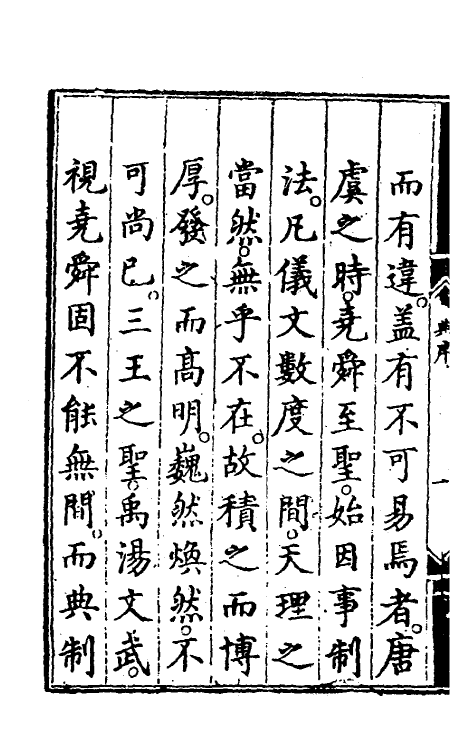 而有違。蓋有不可易焉者。唐
虞之時。堯舜至聖。始因事制
法。凡儀文數度之間。天理之
當然。無乎不在。故積之而博
厚。發之而高明。巍然煥然。不
可尚已。三王之聖。禹湯文武。
視堯舜固不能無間。而典制
會典序
一